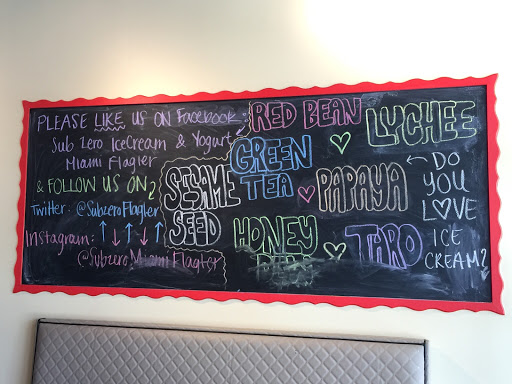 PLEASE LIKE US ON Facebook:
Sub Zero IceCream & Yogurt
Miami Flagler
& FOLLOW US ON
Twitter: @SubzeroFlagler
Instagram:
@SubzeroMiamiFlagler
RED BEAN
LYCHEE
GREEN
TEA
SESAME
SEED
PAPAYA
HONEY
TARO
DO
YOU
LOVE
ICE
CREAM?